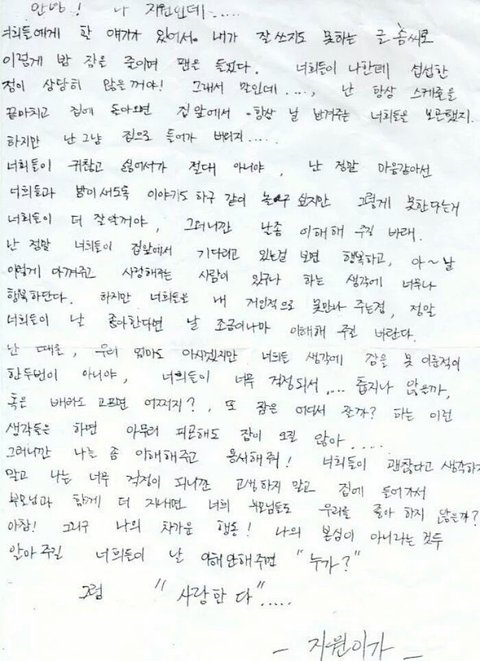 안녕! 나 지원인데.....
너희들에게 할 얘기가 있어서. 내가 잘 쓰지도 못하는 글 솜씨로
이렇게 밤 잠은 줄이며 펜은 들었다. 너희들이 나한테 섭섭한
점이 상당히 많은꺼야! 그래서 말인데...., 난 항상 스케줄을
끝마치고 집에 돌아오면 집앞에서 항상 날 반겨주는 너희들은 보곤했지.
하지만 난 그냥 집으로 들어가 버리지.....
너희들이 귀찮고 싫어서가 절대 아니야, 난 정말 마음같아선
너희들과 밤이새도록 이야기도 하구 같이 놀구 싶지만 그렇게 못한다는거
너희들이 더 잘알꺼야, 그러니깐 날좀 이해해 주길 바래.
난 정말 너희들이 집앞에서 기다리고 있는걸 보면 행복하고, 아~ 날
이렇게 아껴주고 사랑해주는 사람이 있구나 하는 생각에 너무나
행복하단다. 하지만 너희들은 내 개인적으로 못만나 주는점, 정말
너희들이 날 좋아한다면 날 조금이나마 이해해 주길 바란다.
난 때론, 우리 엄마도 아시겠지만 너희들 생각에 잠을 못 이룬적이
한두번이 아니야, 너희들이 너무 걱정되서.... 춥지나 않은까,
혹은 배라도 고프면 어쩌지?, 또 잠은 어디서 잘까? 하는 이런
생각들은 하면 아무리 피곤해도 잠이 오질 않아....
그러니깐 나를 좀 이해해주고 용서해줘! 너희들이 괜찮다고 생각하지
말고 나는 너무 걱정이 되니깐 고생하지 말고 집에 들어가서
부모님과 함께 더 지내면 너희 부모님들도 우리를 좋아 하지 않은까?
아참! 그리구 나의 차가운 행동! 나의 본심이 아니라는 것두
알아 주길 너희들이 날 이해안해주면 "누가?"
그럼 "사랑한다"....
- 지원이가 -